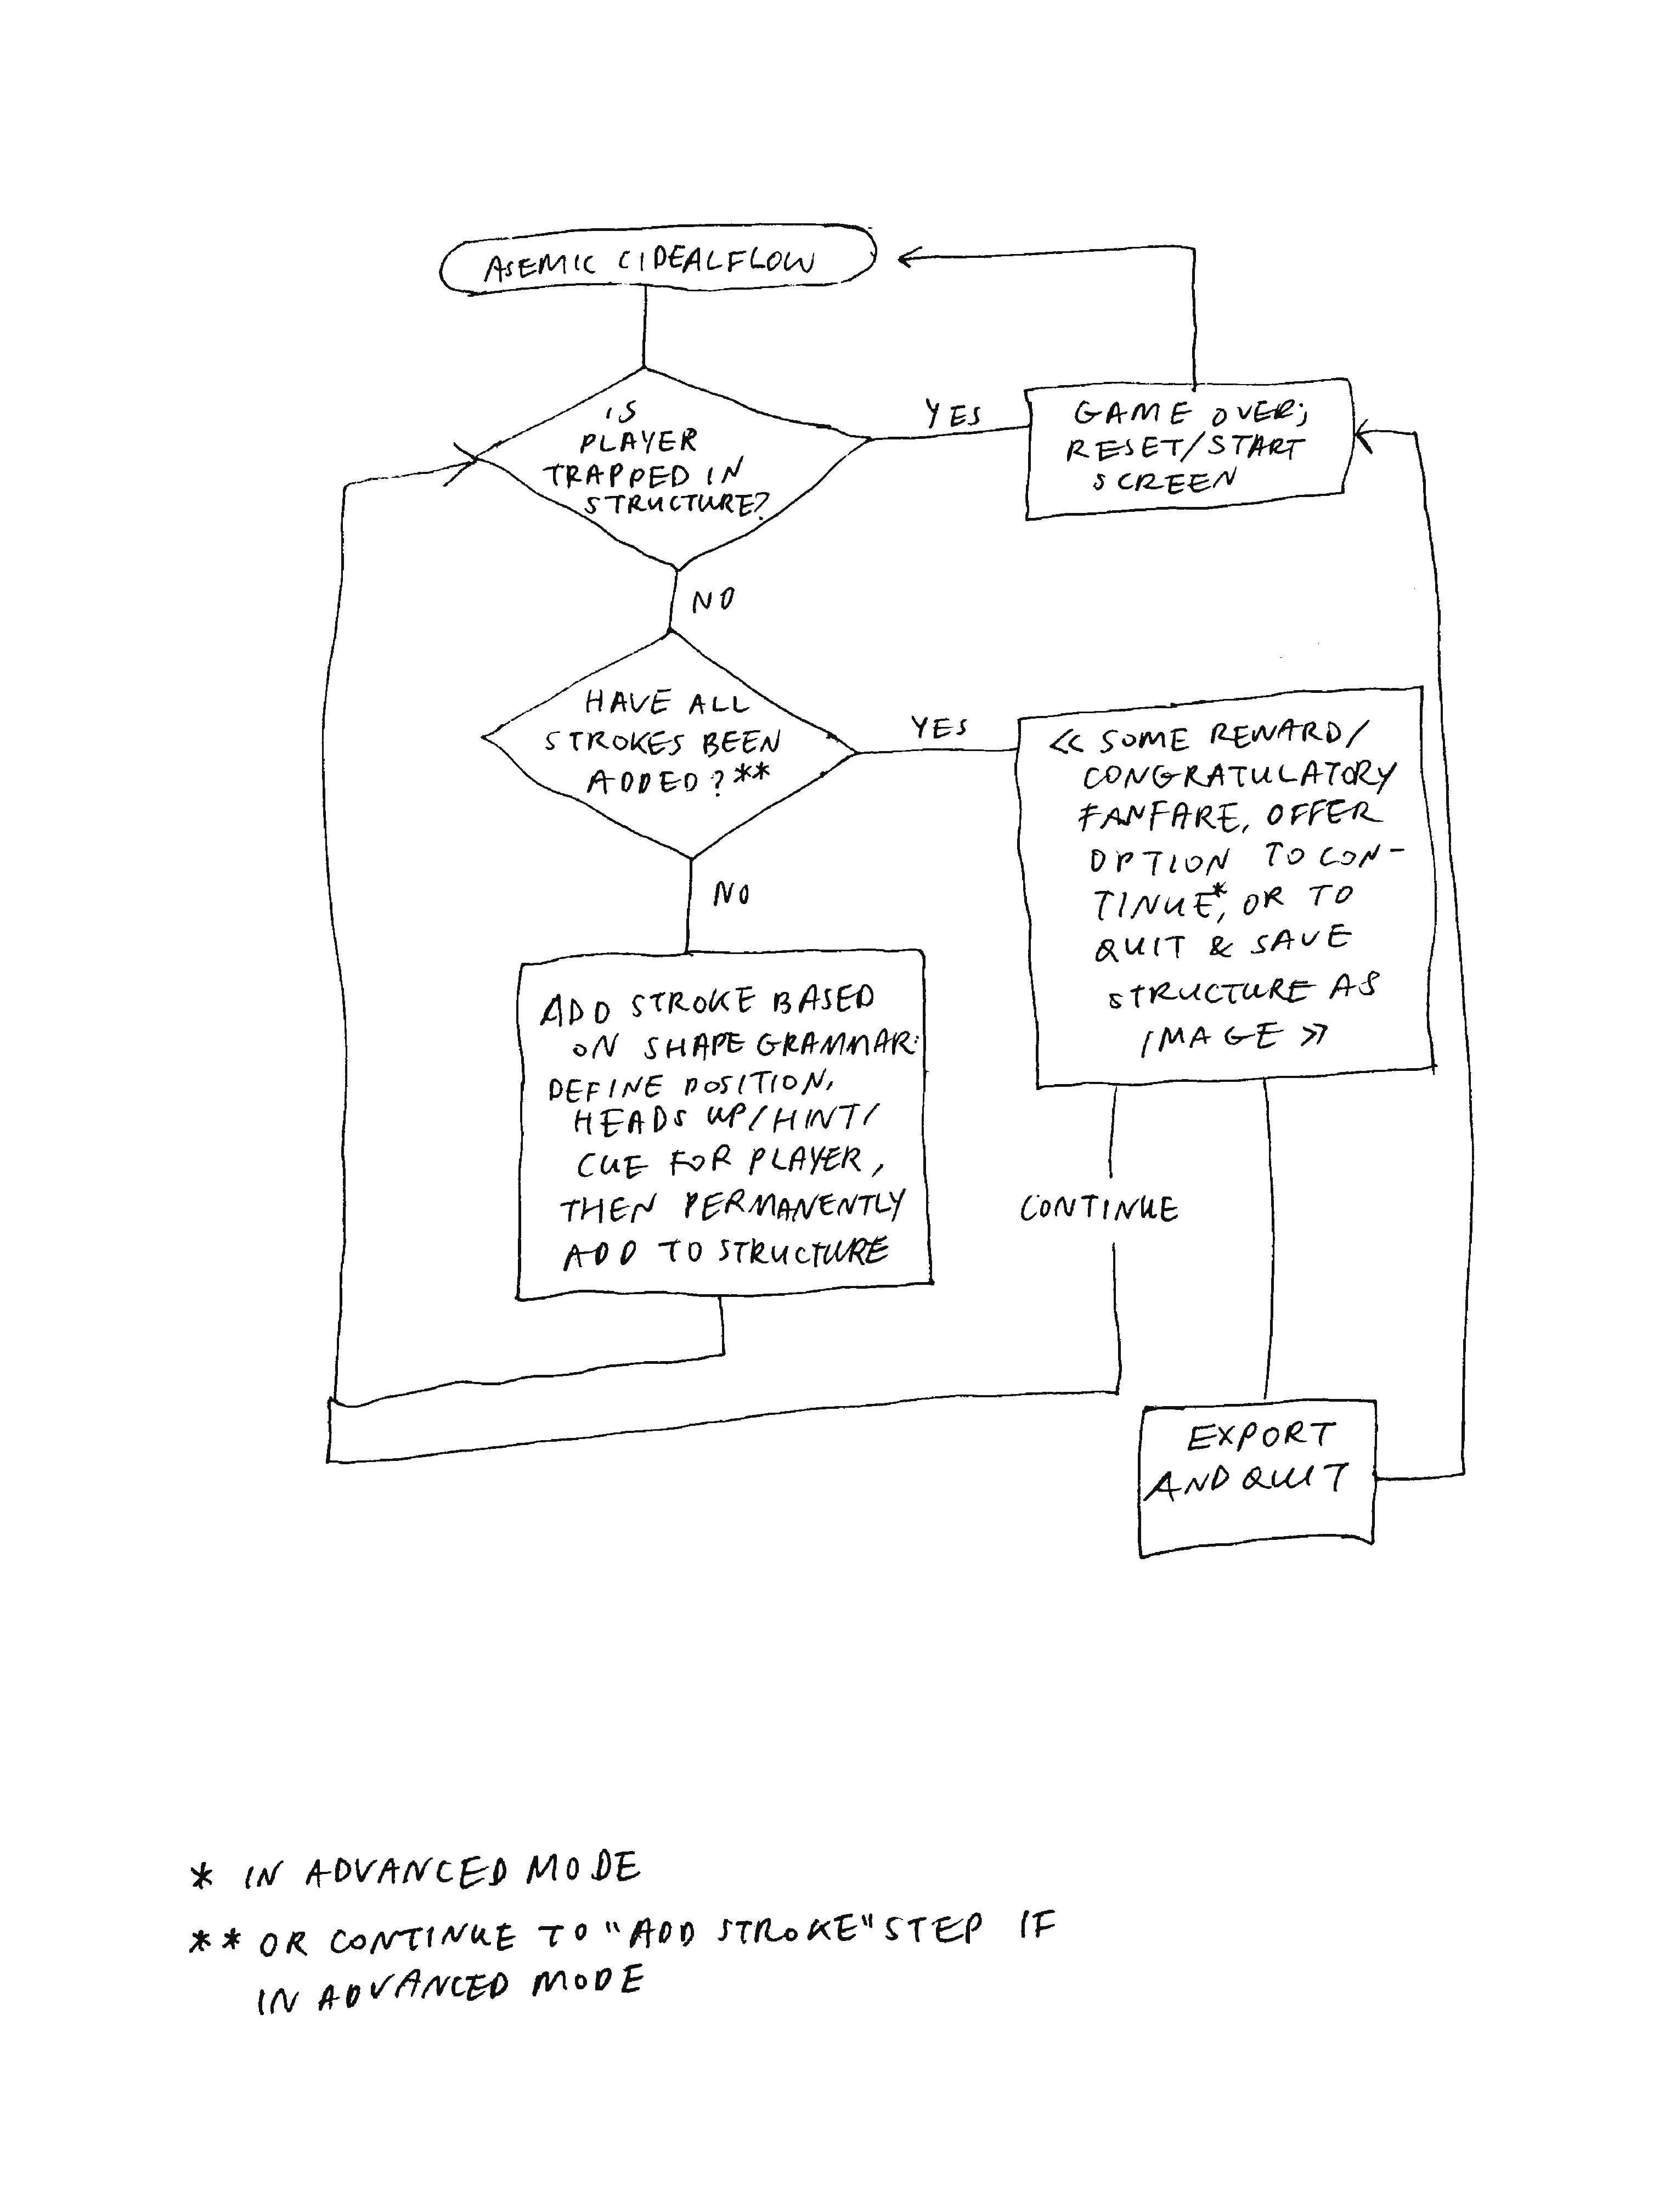 ASEMIC CIDEALFLOW
IS
PLAYER
TRAPPED IN
STRUCTURE?
YES
GAME OVER;
RESET/START
SCREEN
NO
HAVE ALL
STROKES BEEN
ADDED?**
YES
<< SOME REWARD/
CONGRATULATORY
FANFARE, OFFER
OPTION TO CON-
TINUE*, OR TO
QUIT & SAVE
STRUCTURE AS
IMAGE >>
NO
ADD STROKE BASED
ON SHAPE GRAMMAR:
DEFINE POSITION,
HEADS UP/HINT/
CUE FOR PLAYER,
THEN PERMANENTLY
ADD TO STRUCTURE
CONTINUE
EXPORT
AND QUIT
* IN ADVANCED MODE
** OR CONTINUE TO "ADD STROKE" STEP IF
IN ADVANCED MODE